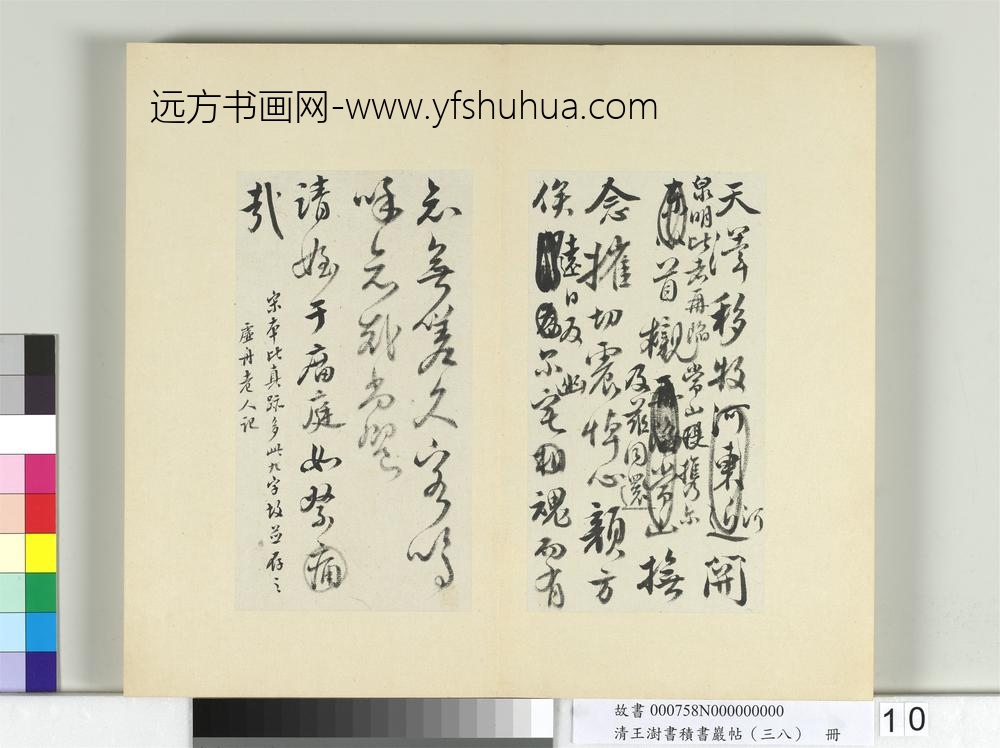 远方书画网-www.yfshuhua.com
天澤移牧河東近河關
泉明比者再陷常山攜爾
首櫬及茲同還撫
念摧切震悼心顏方
俟遠日卜爾幽宅魂而有
知無嗟久客嗚
呼哀哉尚饗
請姪于痛庭如祭痛
哉
宋本此真跡多此九字故並存之
虛舟老人記
故書 000758N000000000
清王澍書積書巖帖(三八) 冊
10